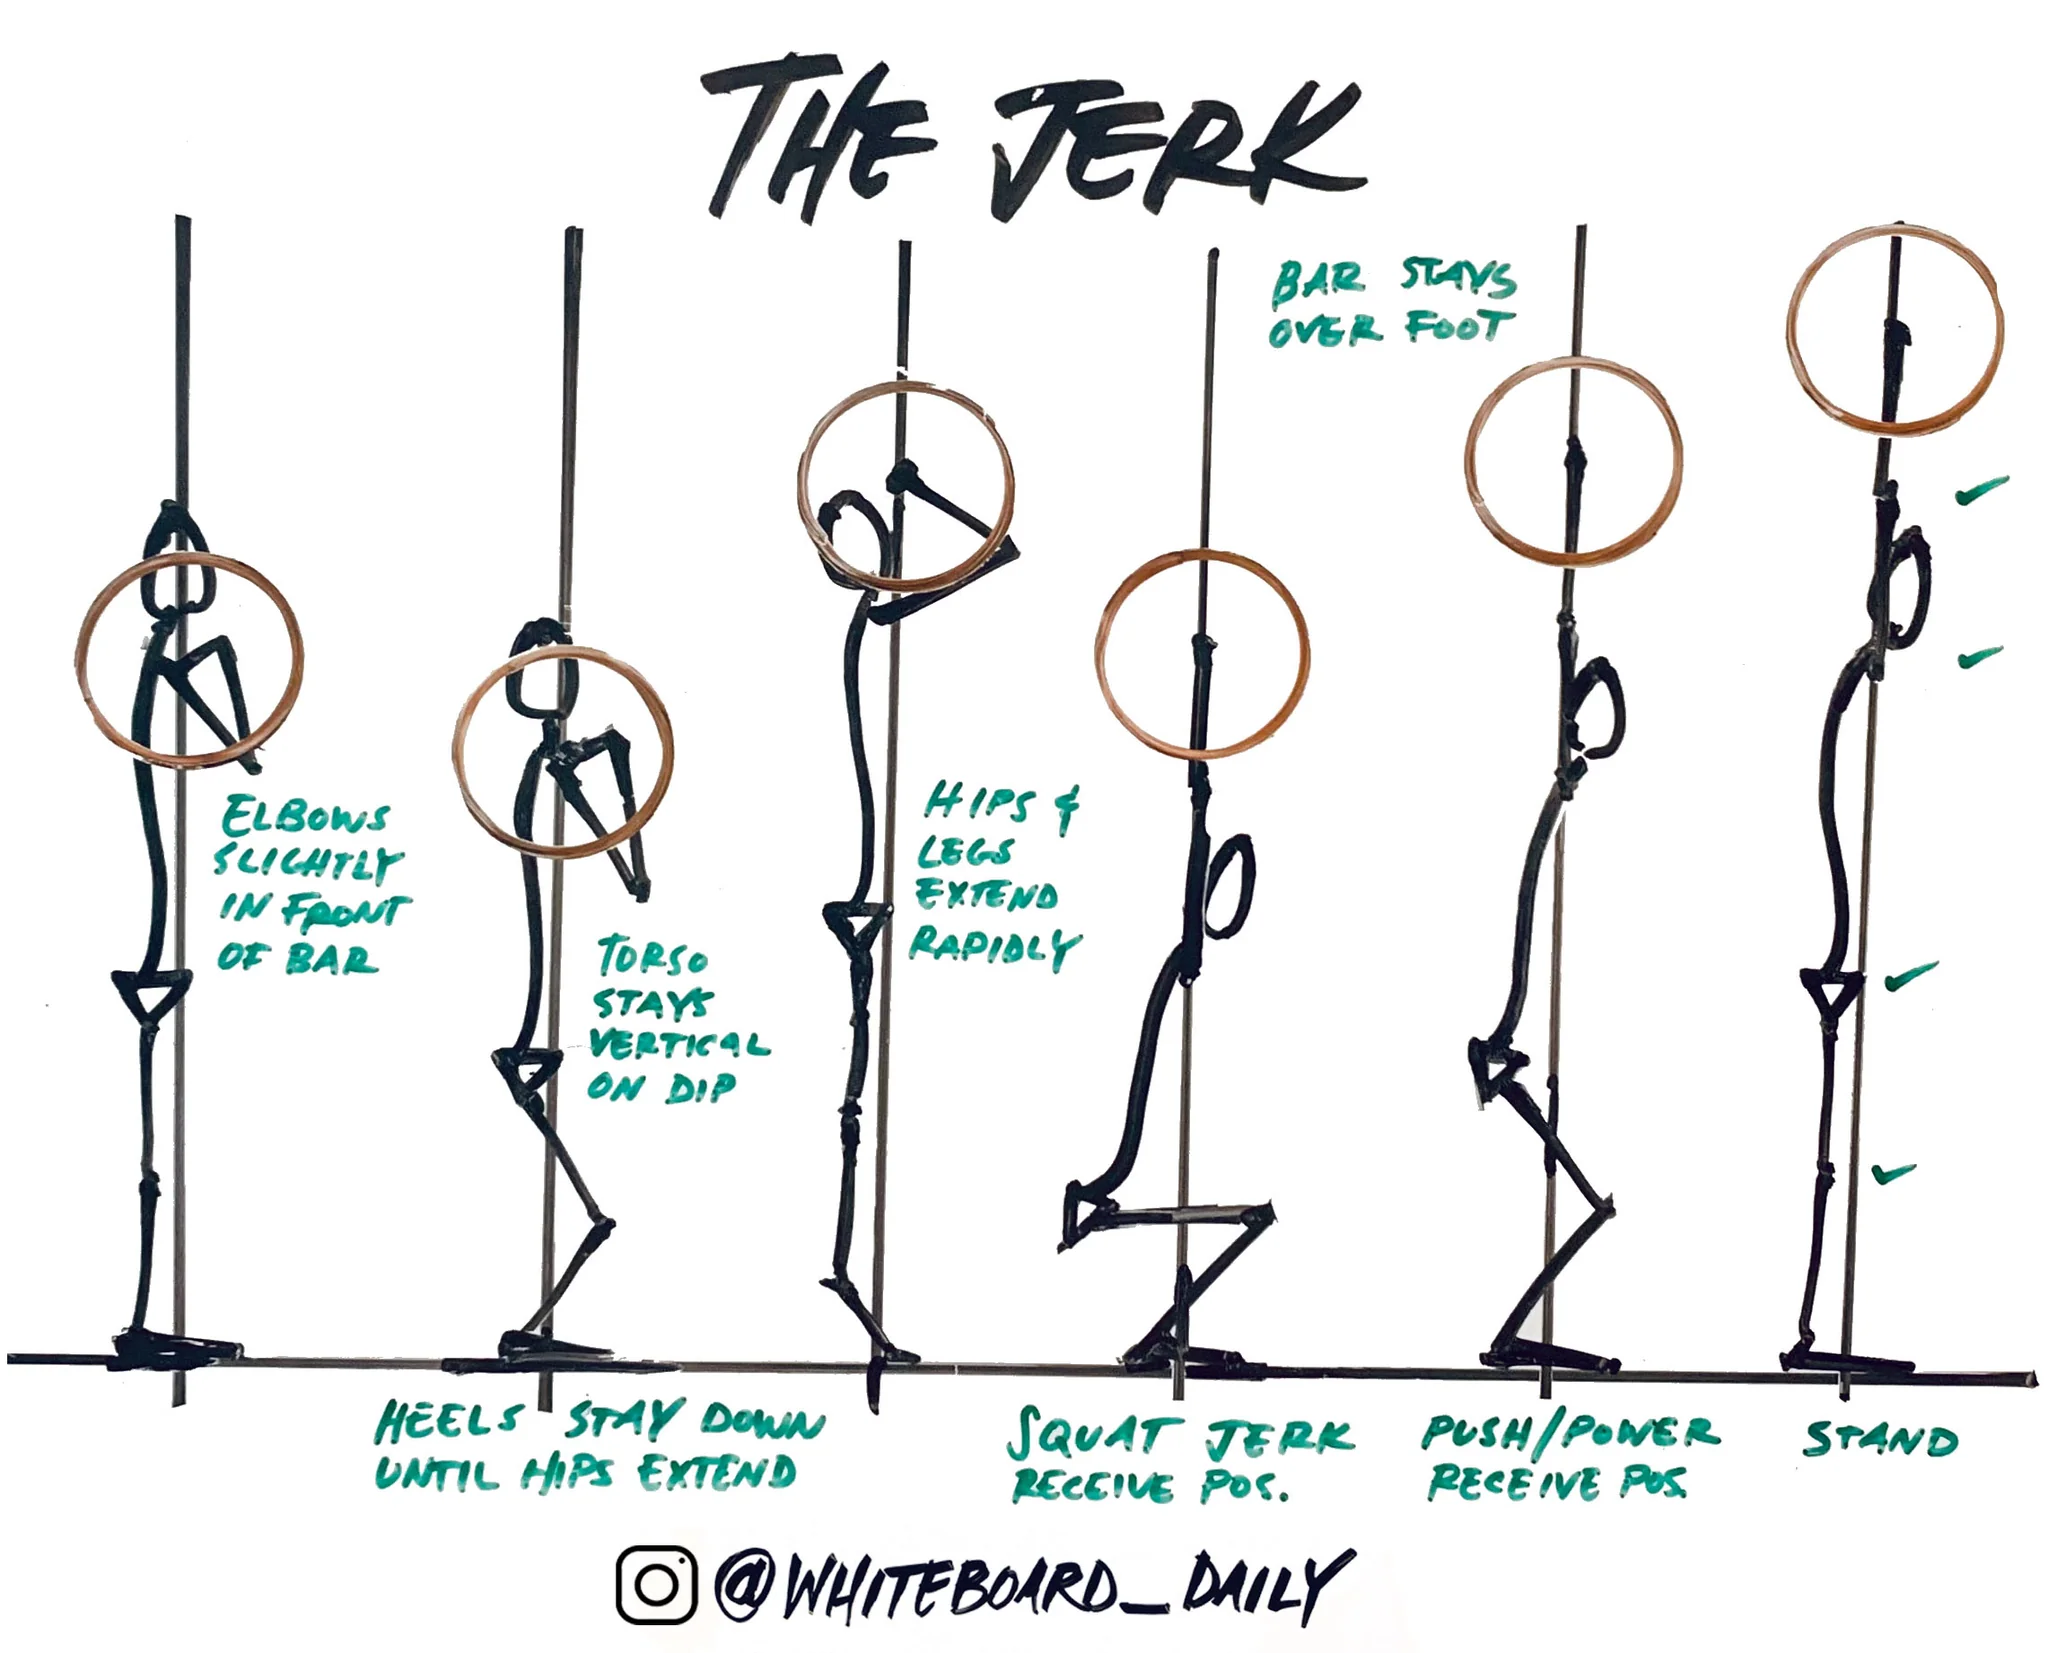 THE JERK
BAR STAYS
OVER FOOT
ELBOWS
SLIGHTLY
IN FRONT
OF BAR
TORSO
STAYS
VERTICAL
ON DIP
HIPS &
LEGS
EXTEND
RAPIDLY
HEELS STAY DOWN
UNTIL HIPS EXTEND
SQUAT JERK
RECEIVE POS.
PUSH/POWER
RECEIVE POS.
STAND
@WHITEBOARD_DAILY